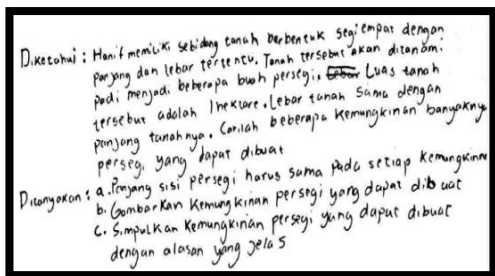 Diketahui : Hanif memiliki sebidang tanah berbentuk segiempat dengan
panjang dan lebar tertentu. Tanah tersebut akan ditanami
padi menjadi beberapa buah persegi. Luas tanah
tersebut adalah 1 hektare. Lebar tanah sama dengan
panjang tanahnya. Carilah beberapa kemungkinan banyaknya
persegi yang dapat dibuat
Ditanyakan : a. Panjang sisi persegi harus sama pada setiap kemungkinan
b. Gambarkan kemungkinan persegi yang dapat dibuat
c. Simpulkan kemungkinan persegi yang dapat dibuat
dengan alasan yang jelas